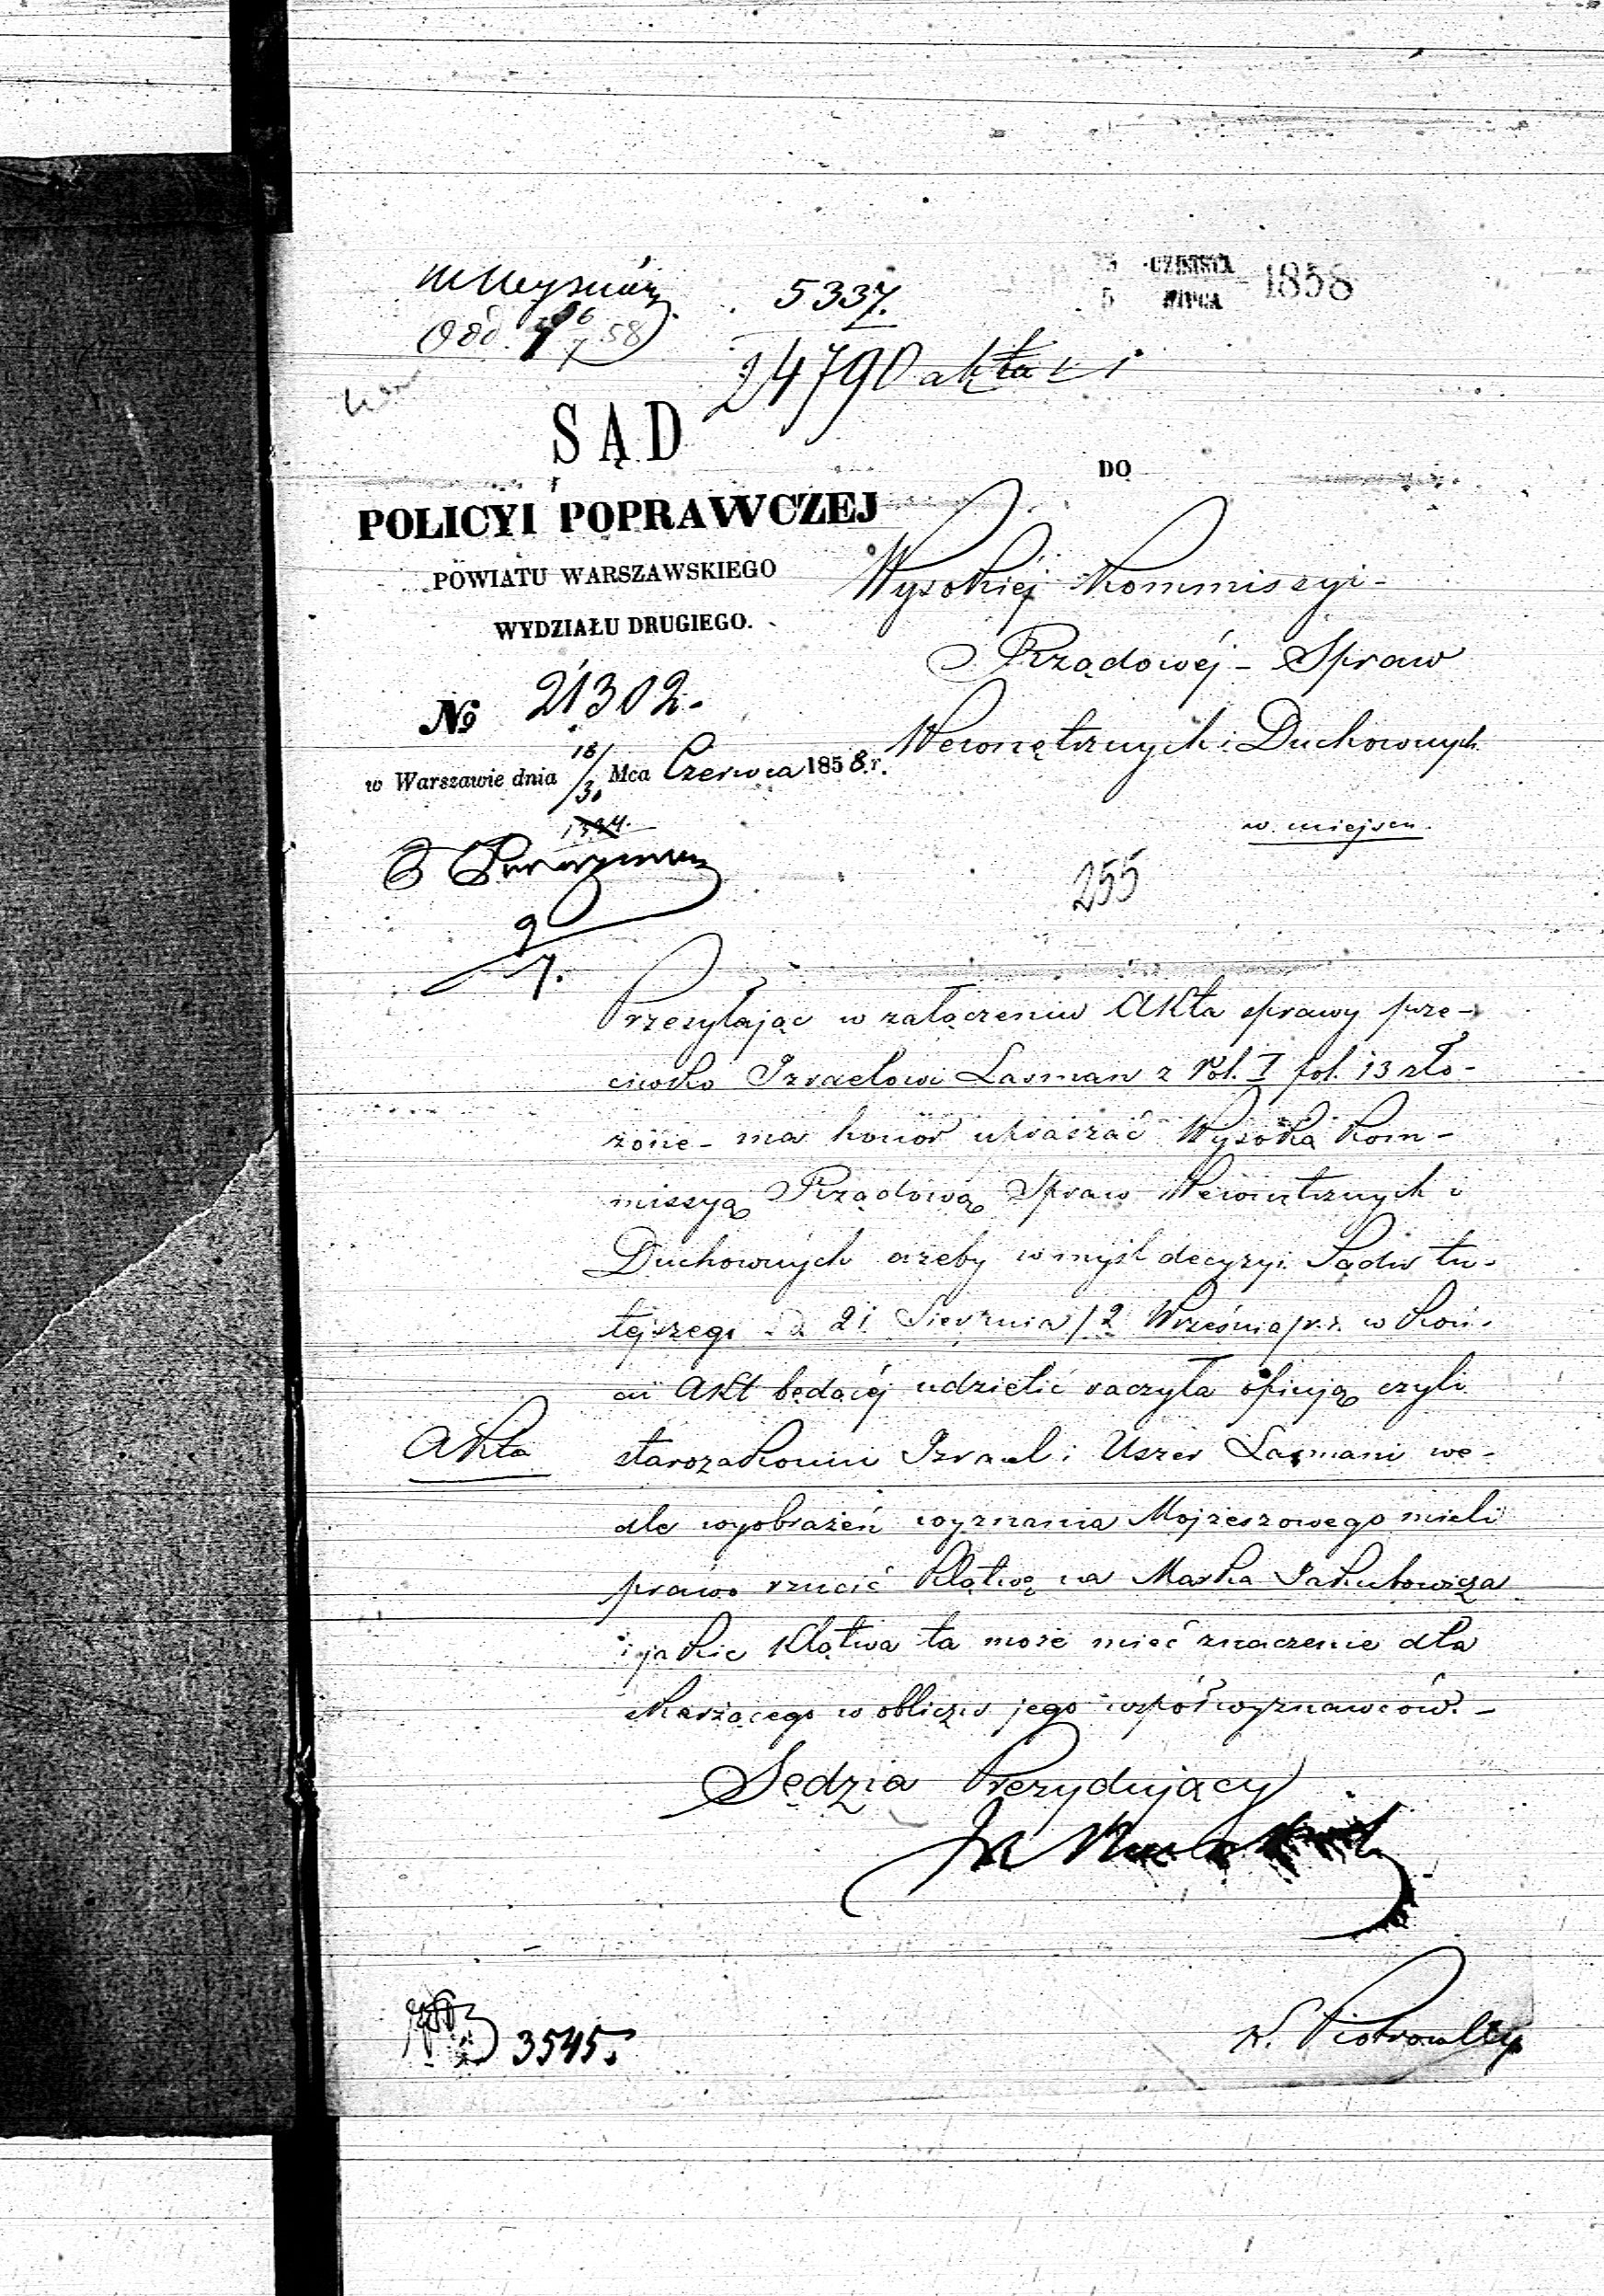 5337.
1858
24790 akta
SĄD
POLICYI POPRAWCZEJ
POWIATU WARSZAWSKIEGO
WYDZIAŁU DRUGIEGO.
№ 21302.
w Warszawie dnia 18/30 Mca Czerwca 1858 r.
DO
Wysokiéj Kommissyi
Rządowéj Spraw
Wewnętrznych i Duchownych
w miejscu.
255
9
7.
Przesyłając w załączeniu Akta sprawy prze-
ciwko Izraelowi Lasman z Vol. I fol. 13 zło-
żone - ma honor upraszać Wysoką Kom-
missyą Rządową Spraw Wewnętrznych i
Duchownych ażeby w myśl decyzyi Sądu tu-
tejszego z d. 21 Sierpnia/2 Września r.z. w koń-
cu Akt będącéj udzielić raczyła opinją czyli
Akta
starozakonni Izrael i Uszer Lasmani we-
dle wyobrażeń wyznania Mojżeszowego mieli
prawo rzucić klątwę na Marka Jakubowicza
i jakie klątwa ta może mieć znaczenie dla
skarżącego w obliczu jego współwyznawców. -
Sędzia Prezydujący
3545.